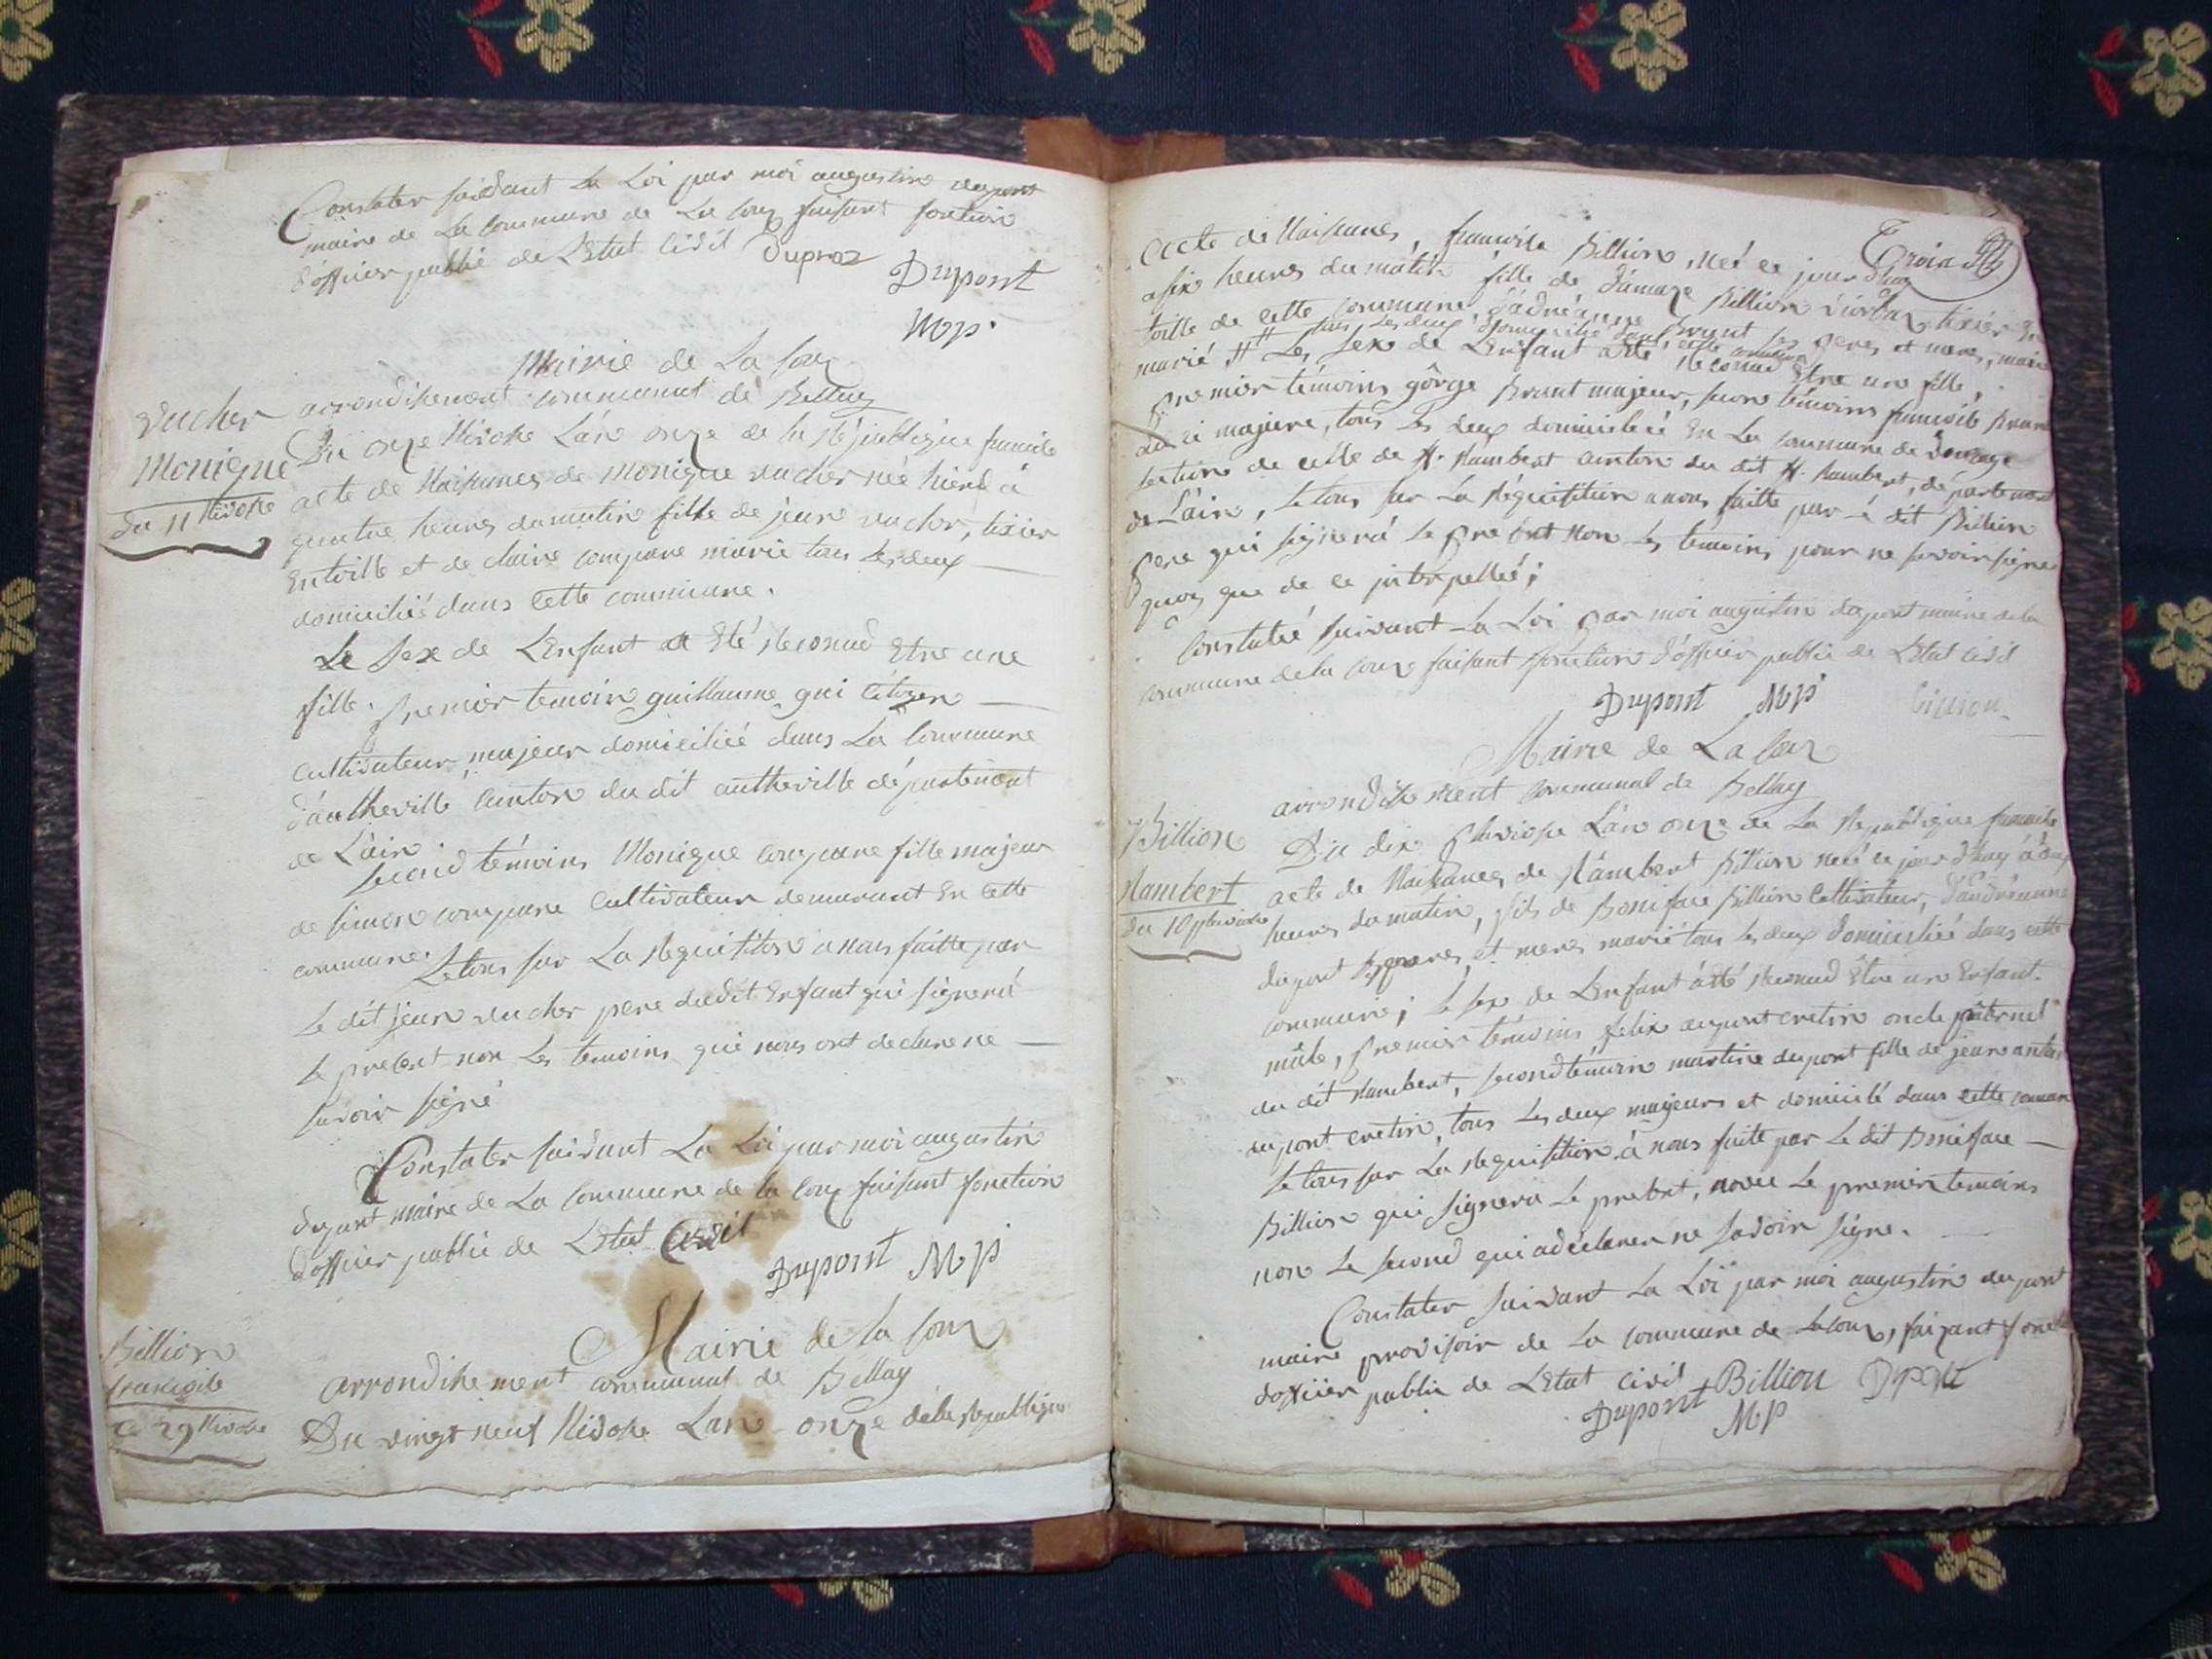 Constater suivant La Loi par moi augustin dupont
maire de La Commune de La Coux faisant fontion
d'officier public de L'Etat Civil Duproz
Dupont
Mp.
Mairie de La Coux
arrondissement communal de Belley
Vucher
Monique
du 11 Nivose
Du onze Nivose L'an onze de la Republique francaise
acte de Naissances de Monique vucher née hierd à
quatre heures du matin fille de jean vucher, tixier
En toille et de claire compare marié tous Les deux
domiciliés dans Cette commune.
Le Sexe de L'Enfant a Eté Reconud Etre une
fille. Premier temoin guillaume gui Citoyen
Cultivateur majeur domicilié dans La Commune
d'autheville Canton du dit autheville département
de L'ain.
Second témoins Monique compare fille majeur
de simon compare Cultivateur demeurant En Cette
commune. Le tous sur La Requisition a nous faitte par
Le dit jean vucher pere du dit Enfant qui signerá
Le present non Les temoins qui nous ont declare ne
savoir signé
Constater suivant La Loi par moi augustin
dupont maire de La Commune de la Coux faisant fonction
d'officier public de L'Etat Civil
Dupont Mp
Mairie de la Coux
arrondissement communal de Bellay
Billion
francoise
du 29 Nivose
Du vingt neuf Nivose L'an onze de la Republique
Troix
acte de Naissances, francoise Billion, Née ce jour d'huy
a six heures du matin fille de Billion tixier En
toille de cette Commune, d'adriéanne Brunt ses peres et meres, marié
tous Les deux domicilié dans cette commune
marié # Les Sexe de L'Enfant a eté Reconud Etre une fille,
Premier témoins gôrge Brunt majeur, second témoins francoise Brunt
aussi majeure, tous Les deux domicilieé En La Commune de
section de celle de St. Rambert Canton du dit St. Rambert, département
de L'ain, Le tous sur La Réquisition a nous faitte par Le dit Billion
Pere qui signerá Le present Non Les temoins pour ne savoir signe
quoy que de ce interpelleé;
Constateé suivant La Loi par moi augustin dupont maire de la
commune de la Coux faisant fonction d'officier public de L'Etat Civil
Dupont Mp
Mairie de La Coux
arrondissement Communal de Bellay
Billion
Rambert
du 10 pluviose
Du dix Pluviose L'an onze de La Republique francaise
acte de Naissances de Rambert Billion neé ce jour d'huy à deux
heures du matin, fils de Boniface Billion Cultivateur, d'andréanne
dupont Ses peres et meres marié tous Les deux domicilieé dans cette
commune; Le sexe de L'Enfant a eté Reconud Etre un Enfant
mâle, Premier témoins felix dupont cretin oncle paternel
du dit Rambert, second témoin martine dupont fille de jean antoi
dupont cretin, tous Les deux majeurs et domicilé dans cette commune
Le tous sur La Requisition à nous faite par Le dit Boniface
Billion qui signera Le present, avec Le premier temoins
non Le second qui a déclarer ne savoir signe.
Constater suivant La Loi par moi augustin dupont
maire provisoir de La commune de Lacoux, faisant fonct
d'officier public de L'Etat Civil
Billion
Dupont
Mp